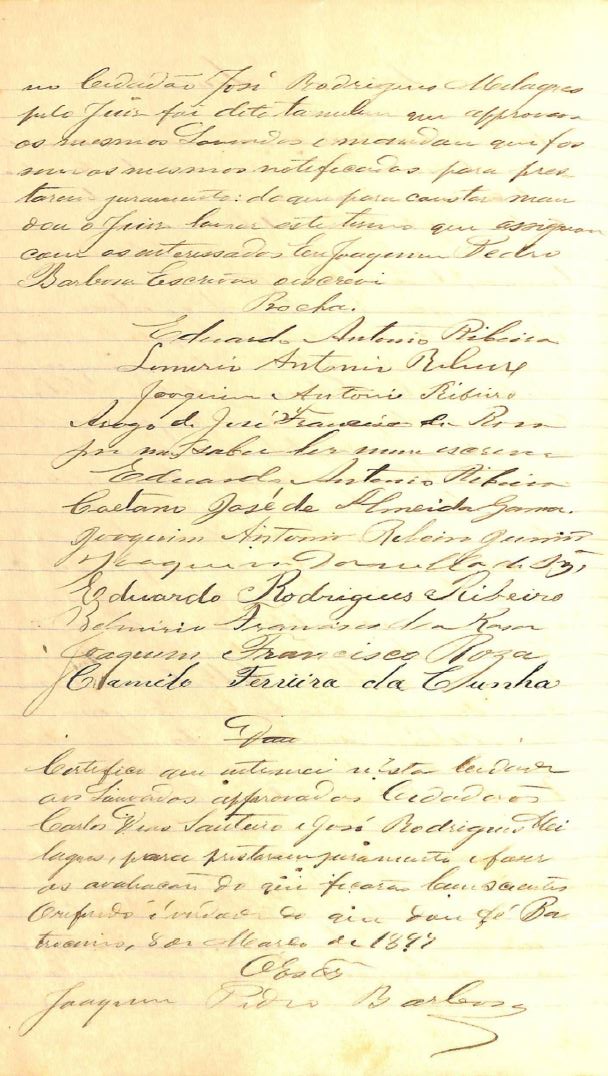 no Cidadão José Rodrigues Milagres
pelo Juiz foi dito tambem que approvava
os mesmos Louvados e mandau que fos
sem os mesmos notificados para pres
tarem juramento: do que para constar man
dou o Juiz lavrar este termo que assignou
com os interessados Eu Joaquim Pedro
Barbosa Escrivão o escrevi
Rocha.
Eduardo Antonio Ribeiro
Antonio
Joaquim Antonio Ribeiro
Arogo de José Francisco da Rosa
por não saber ler nem escrever
Eduardo Antonio Ribeiro
Caetano José de Almeida Gama.
Joaquim Antonio Ribeiro Junior
Joaquim
Eduardo Rodrigues Ribeiro
Francisco da Rosa
Joaquim Francisco Roza
Camilo Ferreira da Cunha
Certifico que intimei nesta Cidade
aos Louvados approvados Cidadãos
Carlos Dias e José Rodrigues Mi
lagres, para prestarem juramento e faser
as avaliacão do que ficarão bem scientes
O referido é verdade do que dou fé Pa
trocinio, 8 de Março de 1897
O Escrº
Joaquim Pedro Barbosa